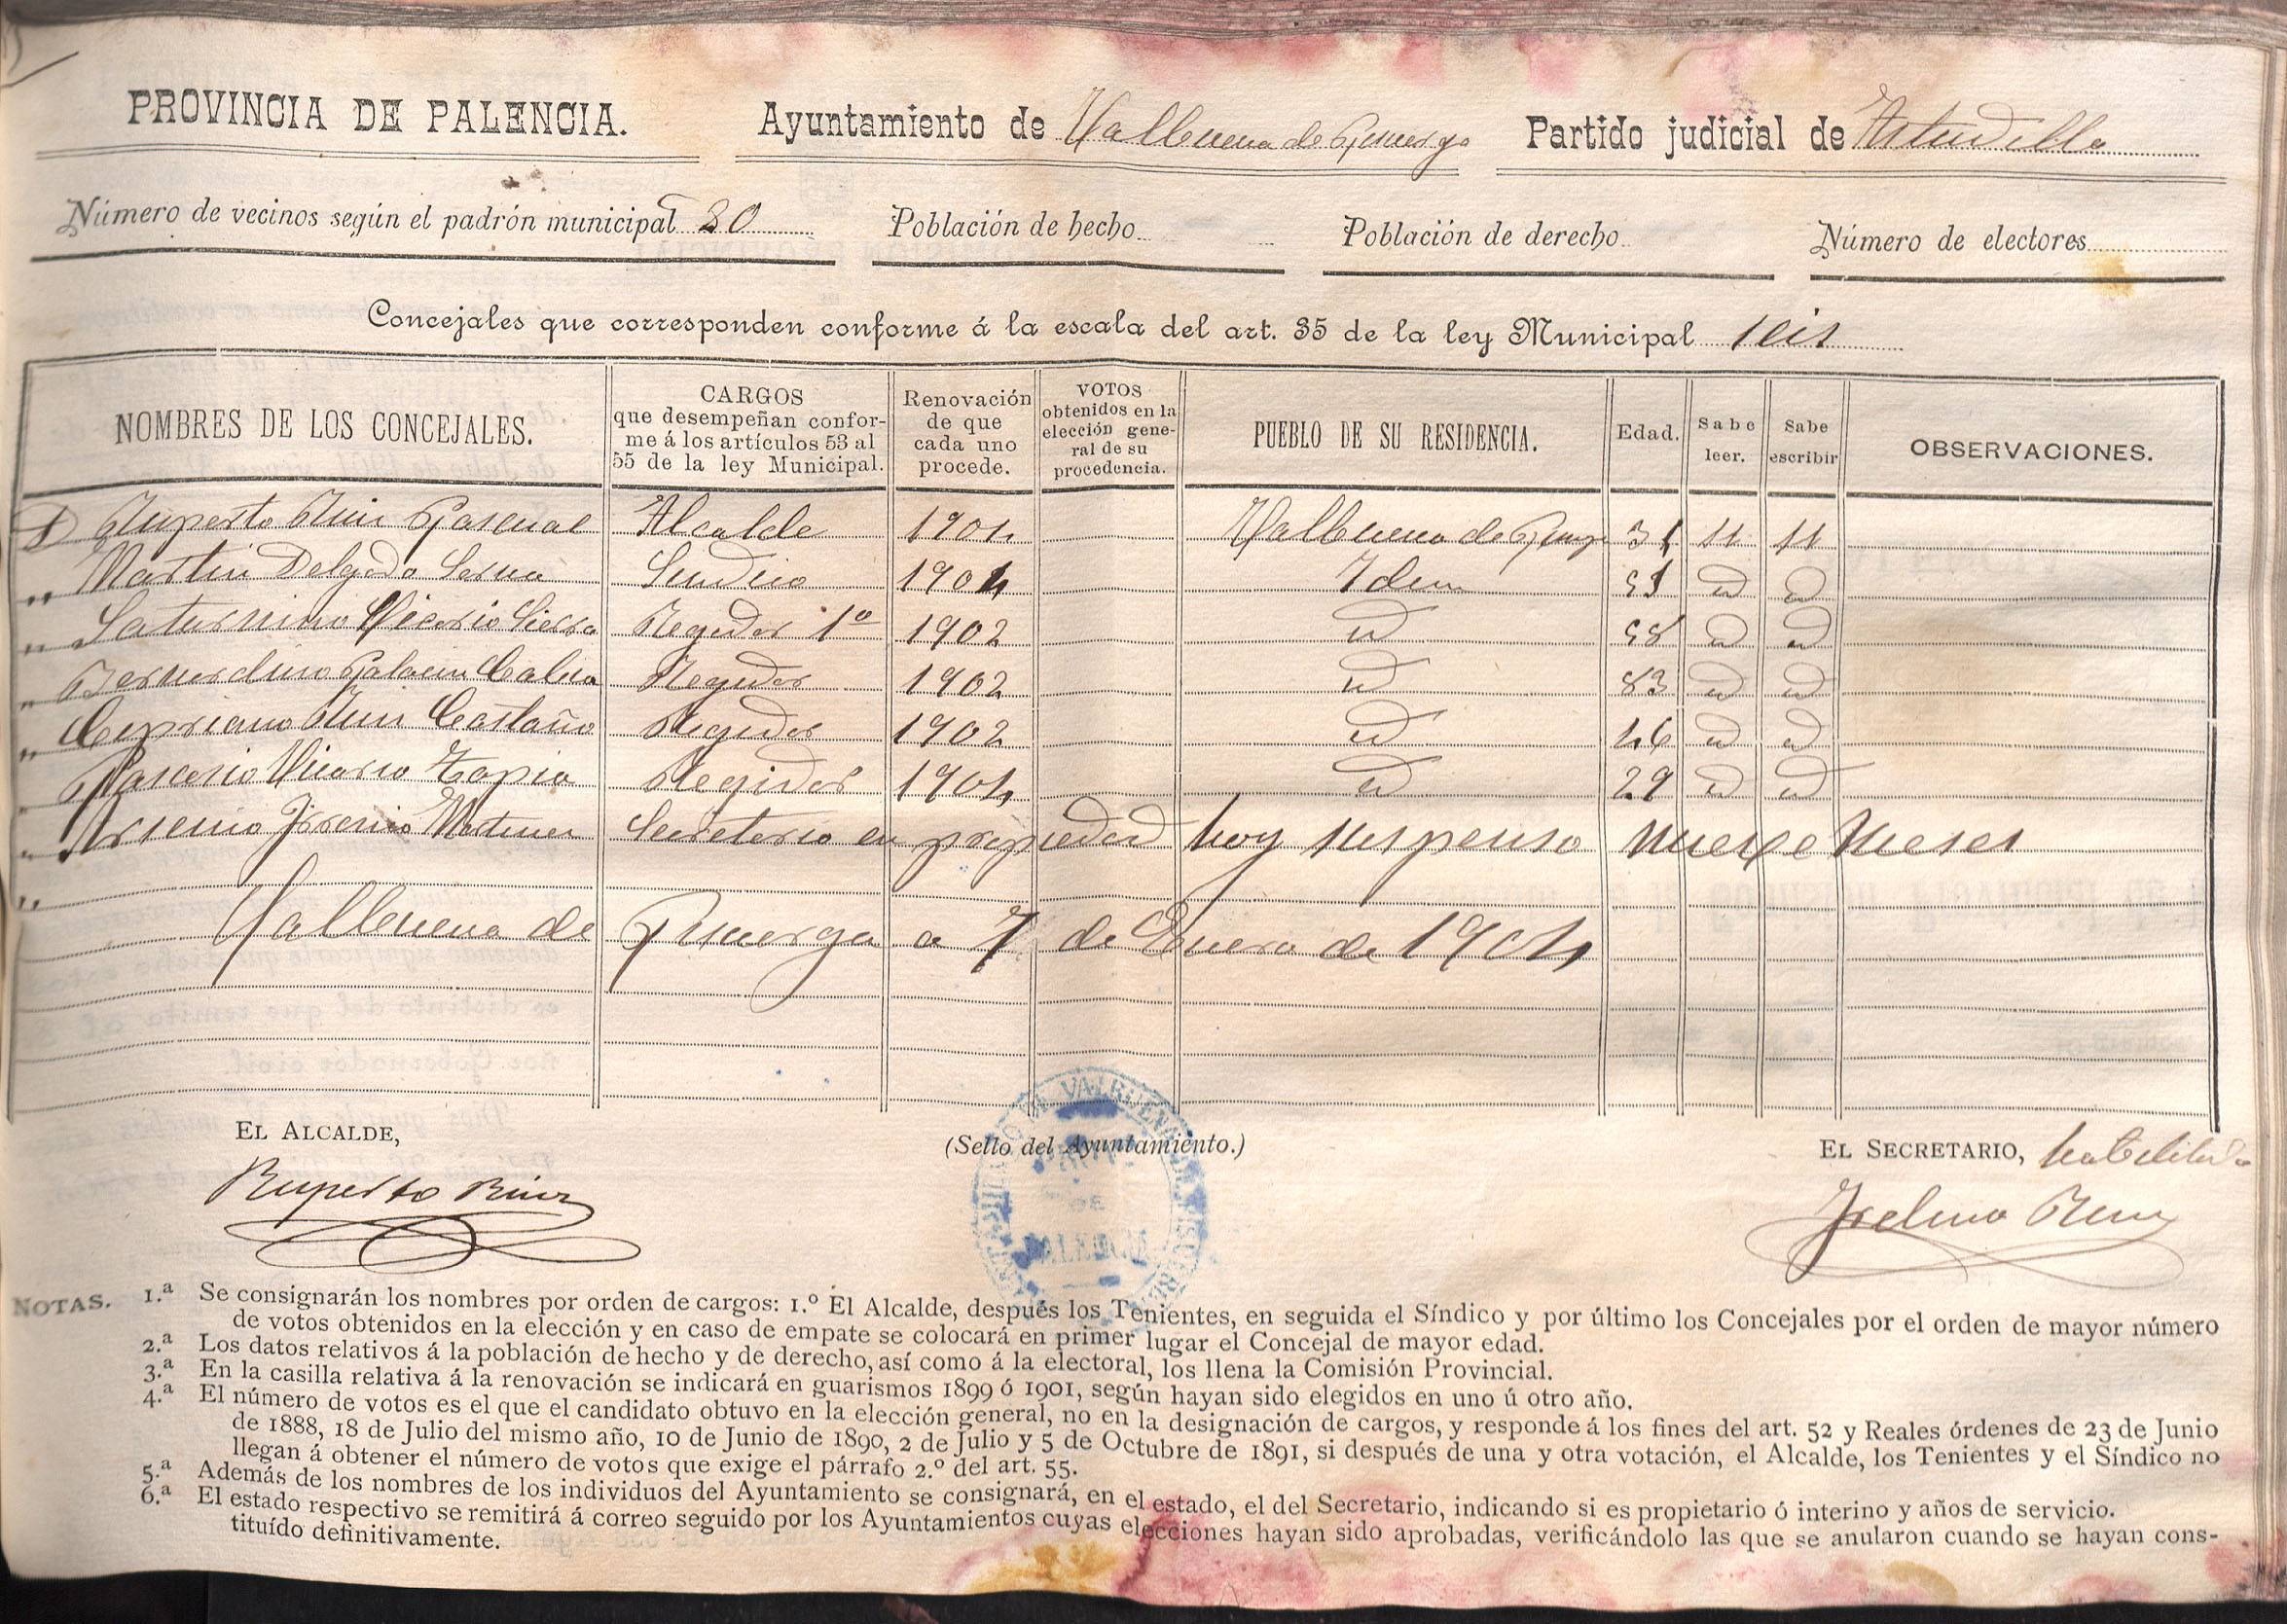 PROVINCIA DE PALENCIA. Ayuntamiento de Valbuena de Pisuerga Partido judicial de Astudillo
Número de vecinos según el padrón municipal 80 Población de hecho Población de derecho Número de electores
Concejales que corresponden conforme á la escala del art. 35 de la ley Municipal seis
NOMBRES DE LOS CONCEJALES. CARGOS que desempeñan conforme á los artículos 53 al 55 de la ley Municipal. Renovación de que cada uno procede. VOTOS obtenidos en la elección general de su procedencia. PUEBLO DE SU RESIDENCIA. Edad. Sabe leer. Sabe escribir OBSERVACIONES.
D Ruperto Ruiz Pascual Alcalde 1904 Valbuena de Pisuerga 31 si si
„ Martin Delgado Serna Sindico 1904 Idem 51 id id
„ Saturnino Vicario Sierra Regidor 1º 1902 id 58 id id
„ Bernardino Palacin Calvo Regidor 1902 id 83 id id
„ Cepriano Ruiz Castaño Regidor 1902 id 46 id id
„ Vicario Tapia Regidor 1904 id 29 id id
„ Arsenio Martinez Secretario en propiedad hoy suspenso nueve meses
Valbuena de Pisuerga a 7 de Enero de 1904
EL ALCALDE, (Sello del Ayuntamiento.) EL SECRETARIO, habilitado
Ruperto Ruiz Ruiz
VALBUENA DE PISUERGA
PALENCIA
NOTAS. 1.ª Se consignarán los nombres por orden de cargos: 1.º El Alcalde, después los Tenientes, en seguida el Síndico y por último los Concejales por el orden de mayor número
de votos obtenidos en la elección y en caso de empate se colocará en primer lugar el Concejal de mayor edad.
2.ª Los datos relativos á la población de hecho y de derecho, así como á la electoral, los llena la Comisión Provincial.
3.ª En la casilla relativa á la renovación se indicará en guarismos 1899 ó 1901, según hayan sido elegidos en uno ú otro año.
4.ª El número de votos es el que el candidato obtuvo en la elección general, no en la designación de cargos, y responde á los fines del art. 52 y Reales órdenes de 23 de Junio
de 1888, 18 de Julio del mismo año, 10 de Junio de 1890, 2 de Julio y 5 de Octubre de 1891, si después de una y otra votación, el Alcalde, los Tenientes y el Síndico no
llegan á obtener el número de votos que exige el párrafo 2.º del art. 55.
5.ª Además de los nombres de los individuos del Ayuntamiento se consignará, en el estado, el del Secretario, indicando si es propietario ó interino y años de servicio.
6.ª El estado respectivo se remitirá á correo seguido por los Ayuntamientos cuyas elecciones hayan sido aprobadas, verificándolo las que se anularon cuando se hayan cons-
tituído definitivamente.